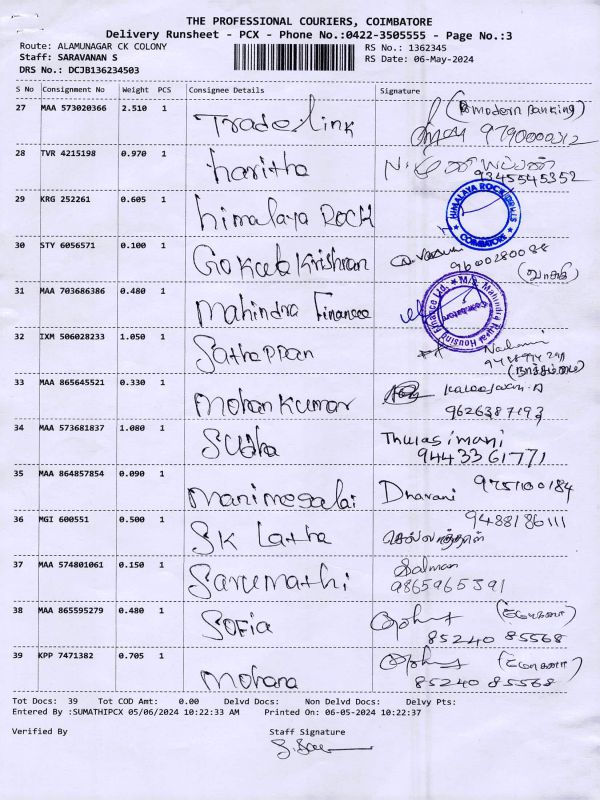 THE PROFESSIONAL COURIERS, COIMBATORE
Delivery Runsheet - PCX - Phone No.:0422-3505555 - Page No.:3
Route: ALAMUNAGAR CK COLONY RS No.: 1362345
Staff: SARAVANAN S RS Date: 06-May-2024
DRS No.: DCJB136234503
S No Consignment No Weight PCS Consignee Details Signature
27 MAA 573020366 2.510 1 Traderlink
28 TVR 4215198 0.970 1 haritha 9345545352
29 KRG 252261 0.605 1 himalaya Rock HIMALAYA ROCK COIMBATORE
30 STY 6056571 0.100 1 Gokulakrishnan 9600280088
31 MAA 703686386 0.480 1 Mahindra Finance M/s. Mahindra Rural Housing Finance Ltd.
32 IXM 506028233 1.050 1 Sathappan
33 MAA 865645521 0.330 1 Mohan Kumar
9626387193
34 MAA 573681837 1.080 1 Sudha Thulasimani
9443361771
35 MAA 864857854 0.090 1 Manimegalai Dharani 9751100184
36 MGI 600551 0.500 1 SK Latha 9488186111
செல்லாத்தாள்
37 MAA 574801061 0.150 1 Sarumathi Salman
9865965391
38 MAA 865595279 0.480 1 Sofia
85240 85568
39 KPP 7471382 0.705 1 Mohana
85240 85568
Tot Docs: 39 Tot COD Amt: 0.00 Delvd Docs: Non Delvd Docs: Delvy Pts:
Entered By :SUMATHIPCX 05/06/2024 10:22:33 AM Printed On: 06-05-2024 10:22:37
Verified By Staff Signature